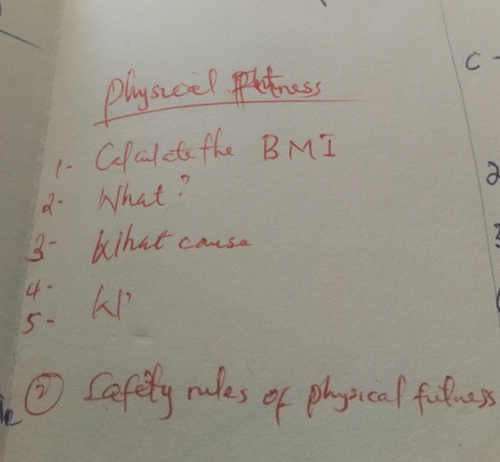 Physical Fitness
1- Calculate the BMI
2- What?
3- What cause
4-
5- Wh
② Safety rules of physical fitness
C -
2
3